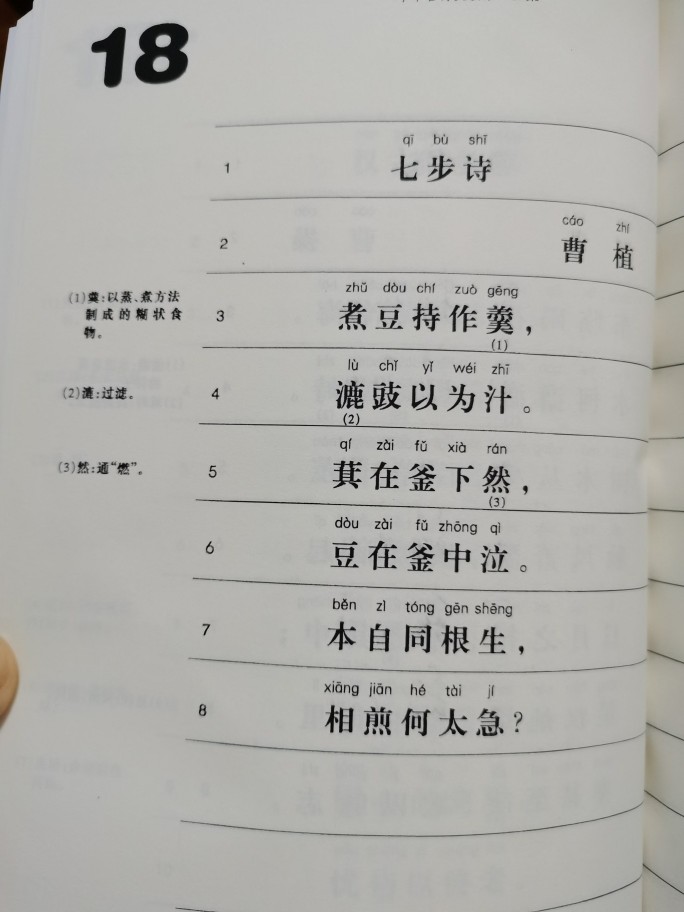 18
qī bù shī
1 七步诗
cáo zhí
2 曹植
zhǔ dòu chí zuò gēng
(1)羹:以蒸、煮方法
制成的糊状食
物。
3 煮豆持作羹,
(1)
lù chǐ yǐ wéi zhī
(2)漉:过滤。
4 漉豉以为汁。
(2)
qí zài fǔ xià rán
(3)然:通“燃”。
5 萁在釜下然,
(3)
dòu zài fǔ zhōng qì
6 豆在釜中泣。
běn zì tóng gēn shēng
7 本自同根生,
xiāng jiān hé tài jí
8 相煎何太急?